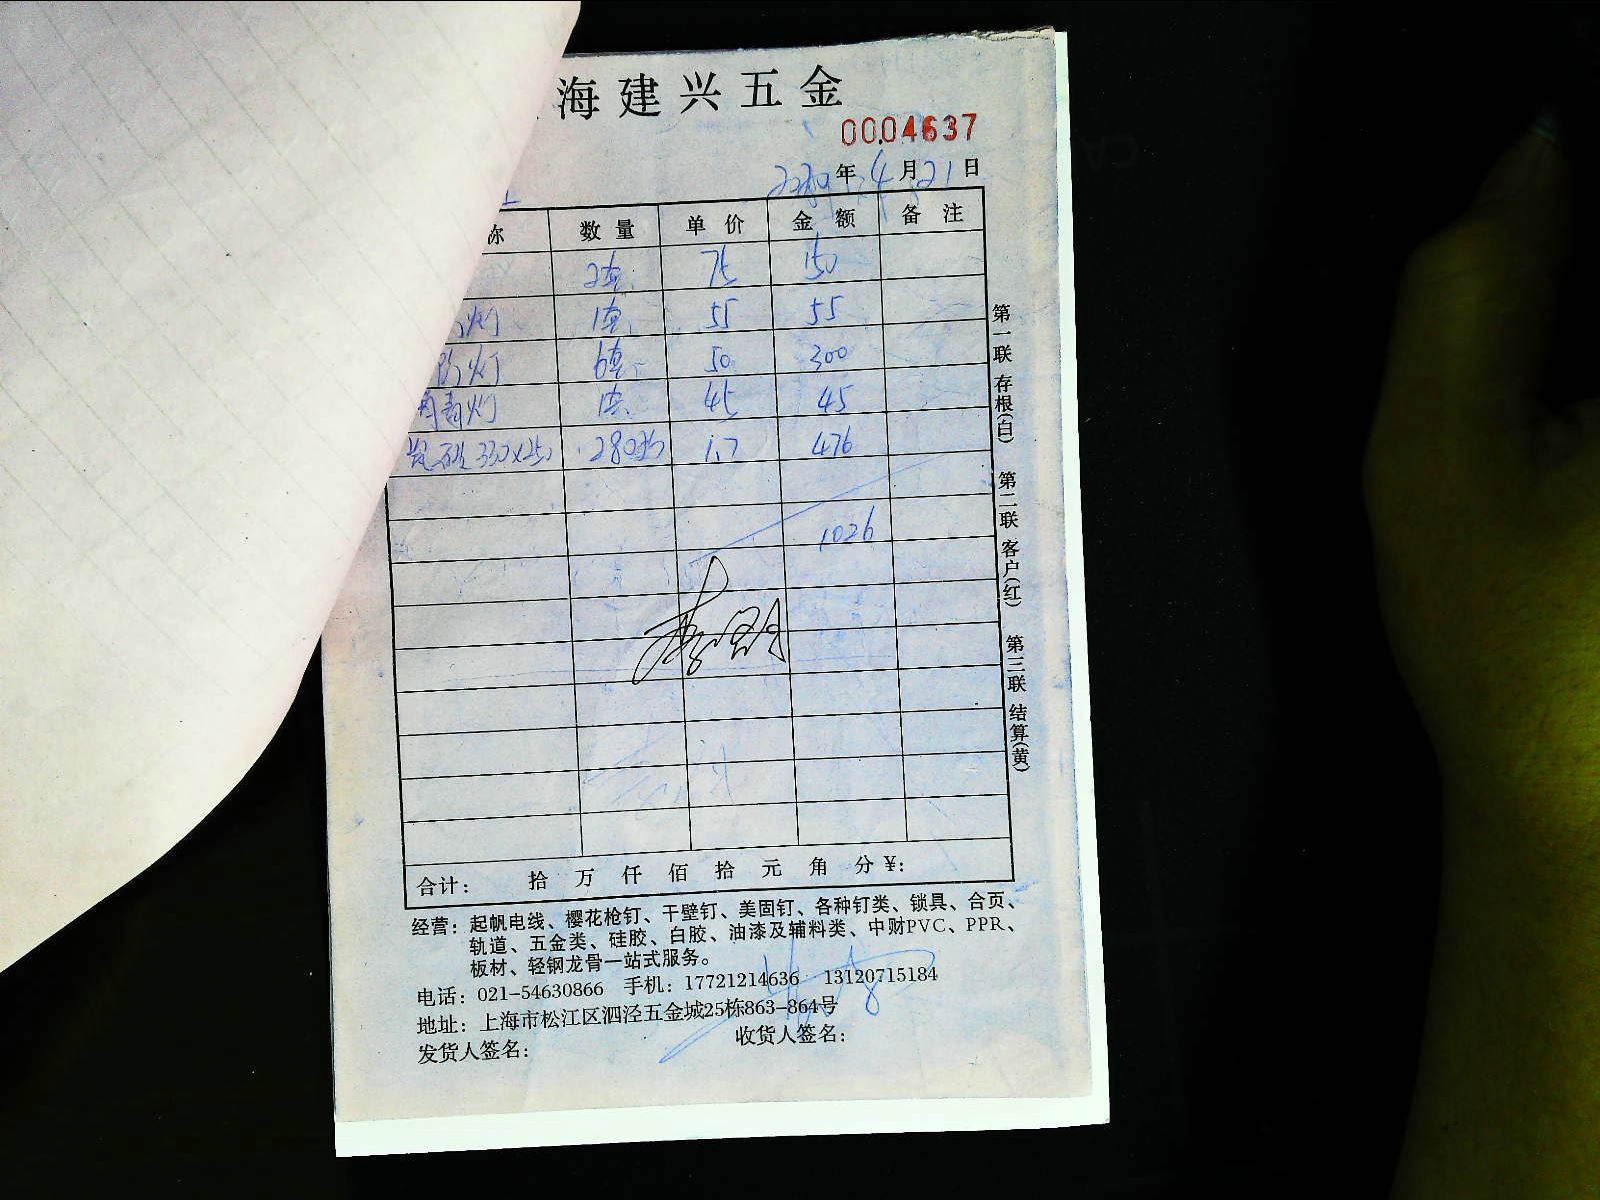 海建兴五金
0004637
年4月21日
称 数量 单价 金额 备注
2套 75 150
灯 1套 55 55
防灯 6套 50 300
灯 1套 45 45
瓷砖330×250 280块 1.7 476
1026
合计： 拾 万 仟 佰 拾 元 角 分 ¥:
经营：起帆电线、樱花枪钉、干壁钉、美固钉、各种钉类、锁具、合页、
轨道、五金类、硅胶、白胶、油漆及辅料类、中财PVC、PPR、
板材、轻钢龙骨一站式服务。
电话：021-54630866 手机：17721214636 13120715184
地址：上海市松江区泗泾五金城25栋863-864号
发货人签名： 收货人签名：
第一联 存根(白)
第二联 客户(红)
第三联 结算(黄)